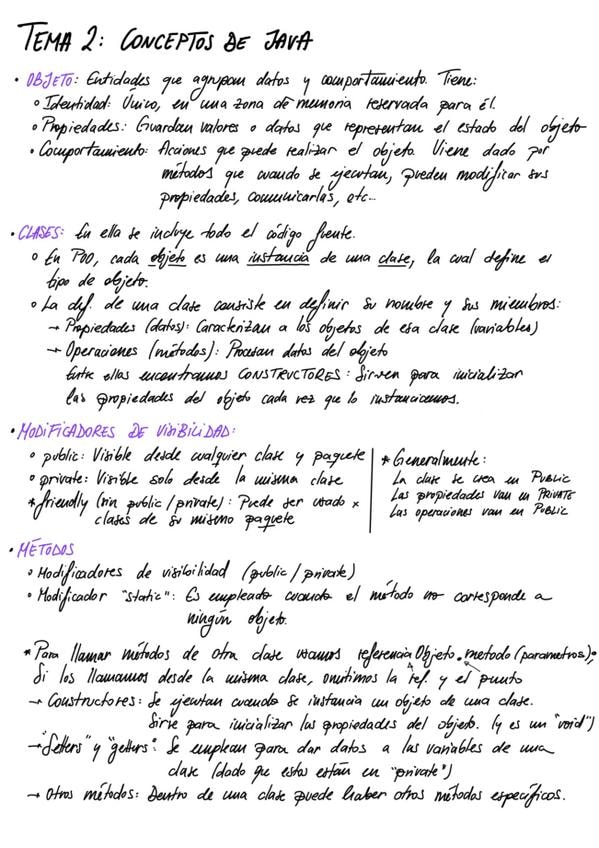 TEMA 2: CONCEPTOS DE JAVA
• OBJETO: Entidades que agrupan datos y comportamiento. Tiene:
∘ Identidad: Único, en una zona de memoria reservada para él.
∘ Propiedades: Guardan valores o datos que representan el estado del objeto
∘ Comportamiento: Acciones que puede realizar el objeto. Viene dado por
métodos que cuando se ejecutan, pueden modificar sus
propiedades, comunicarlas, etc...
• CLASES: En ella se incluye todo el código fuente.
∘ En POO, cada objeto es una instancia de una clase, la cual define el
tipo de objeto.
∘ La def. de una clase consiste en definir su nombre y sus miembros:
→ Propiedades (datos): Caracterizan a los objetos de esa clase (variables)
→ Operaciones (métodos): Procesan datos del objeto
Entre ellas encontramos CONSTRUCTORES: Sirven para inicializar
las propiedades del objeto cada vez que lo instanciemos.
• MODIFICADORES DE VISIBILIDAD:
∘ public: Visible desde cualquier clase y paquete
∘ private: Visible solo desde la misma clase
* friendly (sin public/private): Puede ser usado x
clases de su mismo paquete
* Generalmente:
La clase se crea en PUBLIC
Las propiedades van en PRIVATE
Las operaciones van en PUBLIC
• MÉTODOS
∘ Modificadores de visibilidad (public/private)
∘ Modificador "static": Es empleado cuando el método no corresponde a
ningún objeto.
* Para llamar métodos de otra clase usamos referenciaObjeto.metodo(parametros);
Si los llamamos desde la misma clase, omitimos la ref. y el punto
→ Constructores: Se ejecutan cuando se instancia un objeto de una clase.
Sirve para inicializar las propiedades del objeto. (y es un "void")
→ "Setters" y "getters": Se emplean para dar datos a las variables de una
clase (dado que estas están en "private")
→ Otros métodos: Dentro de una clase puede haber otros métodos específicos.